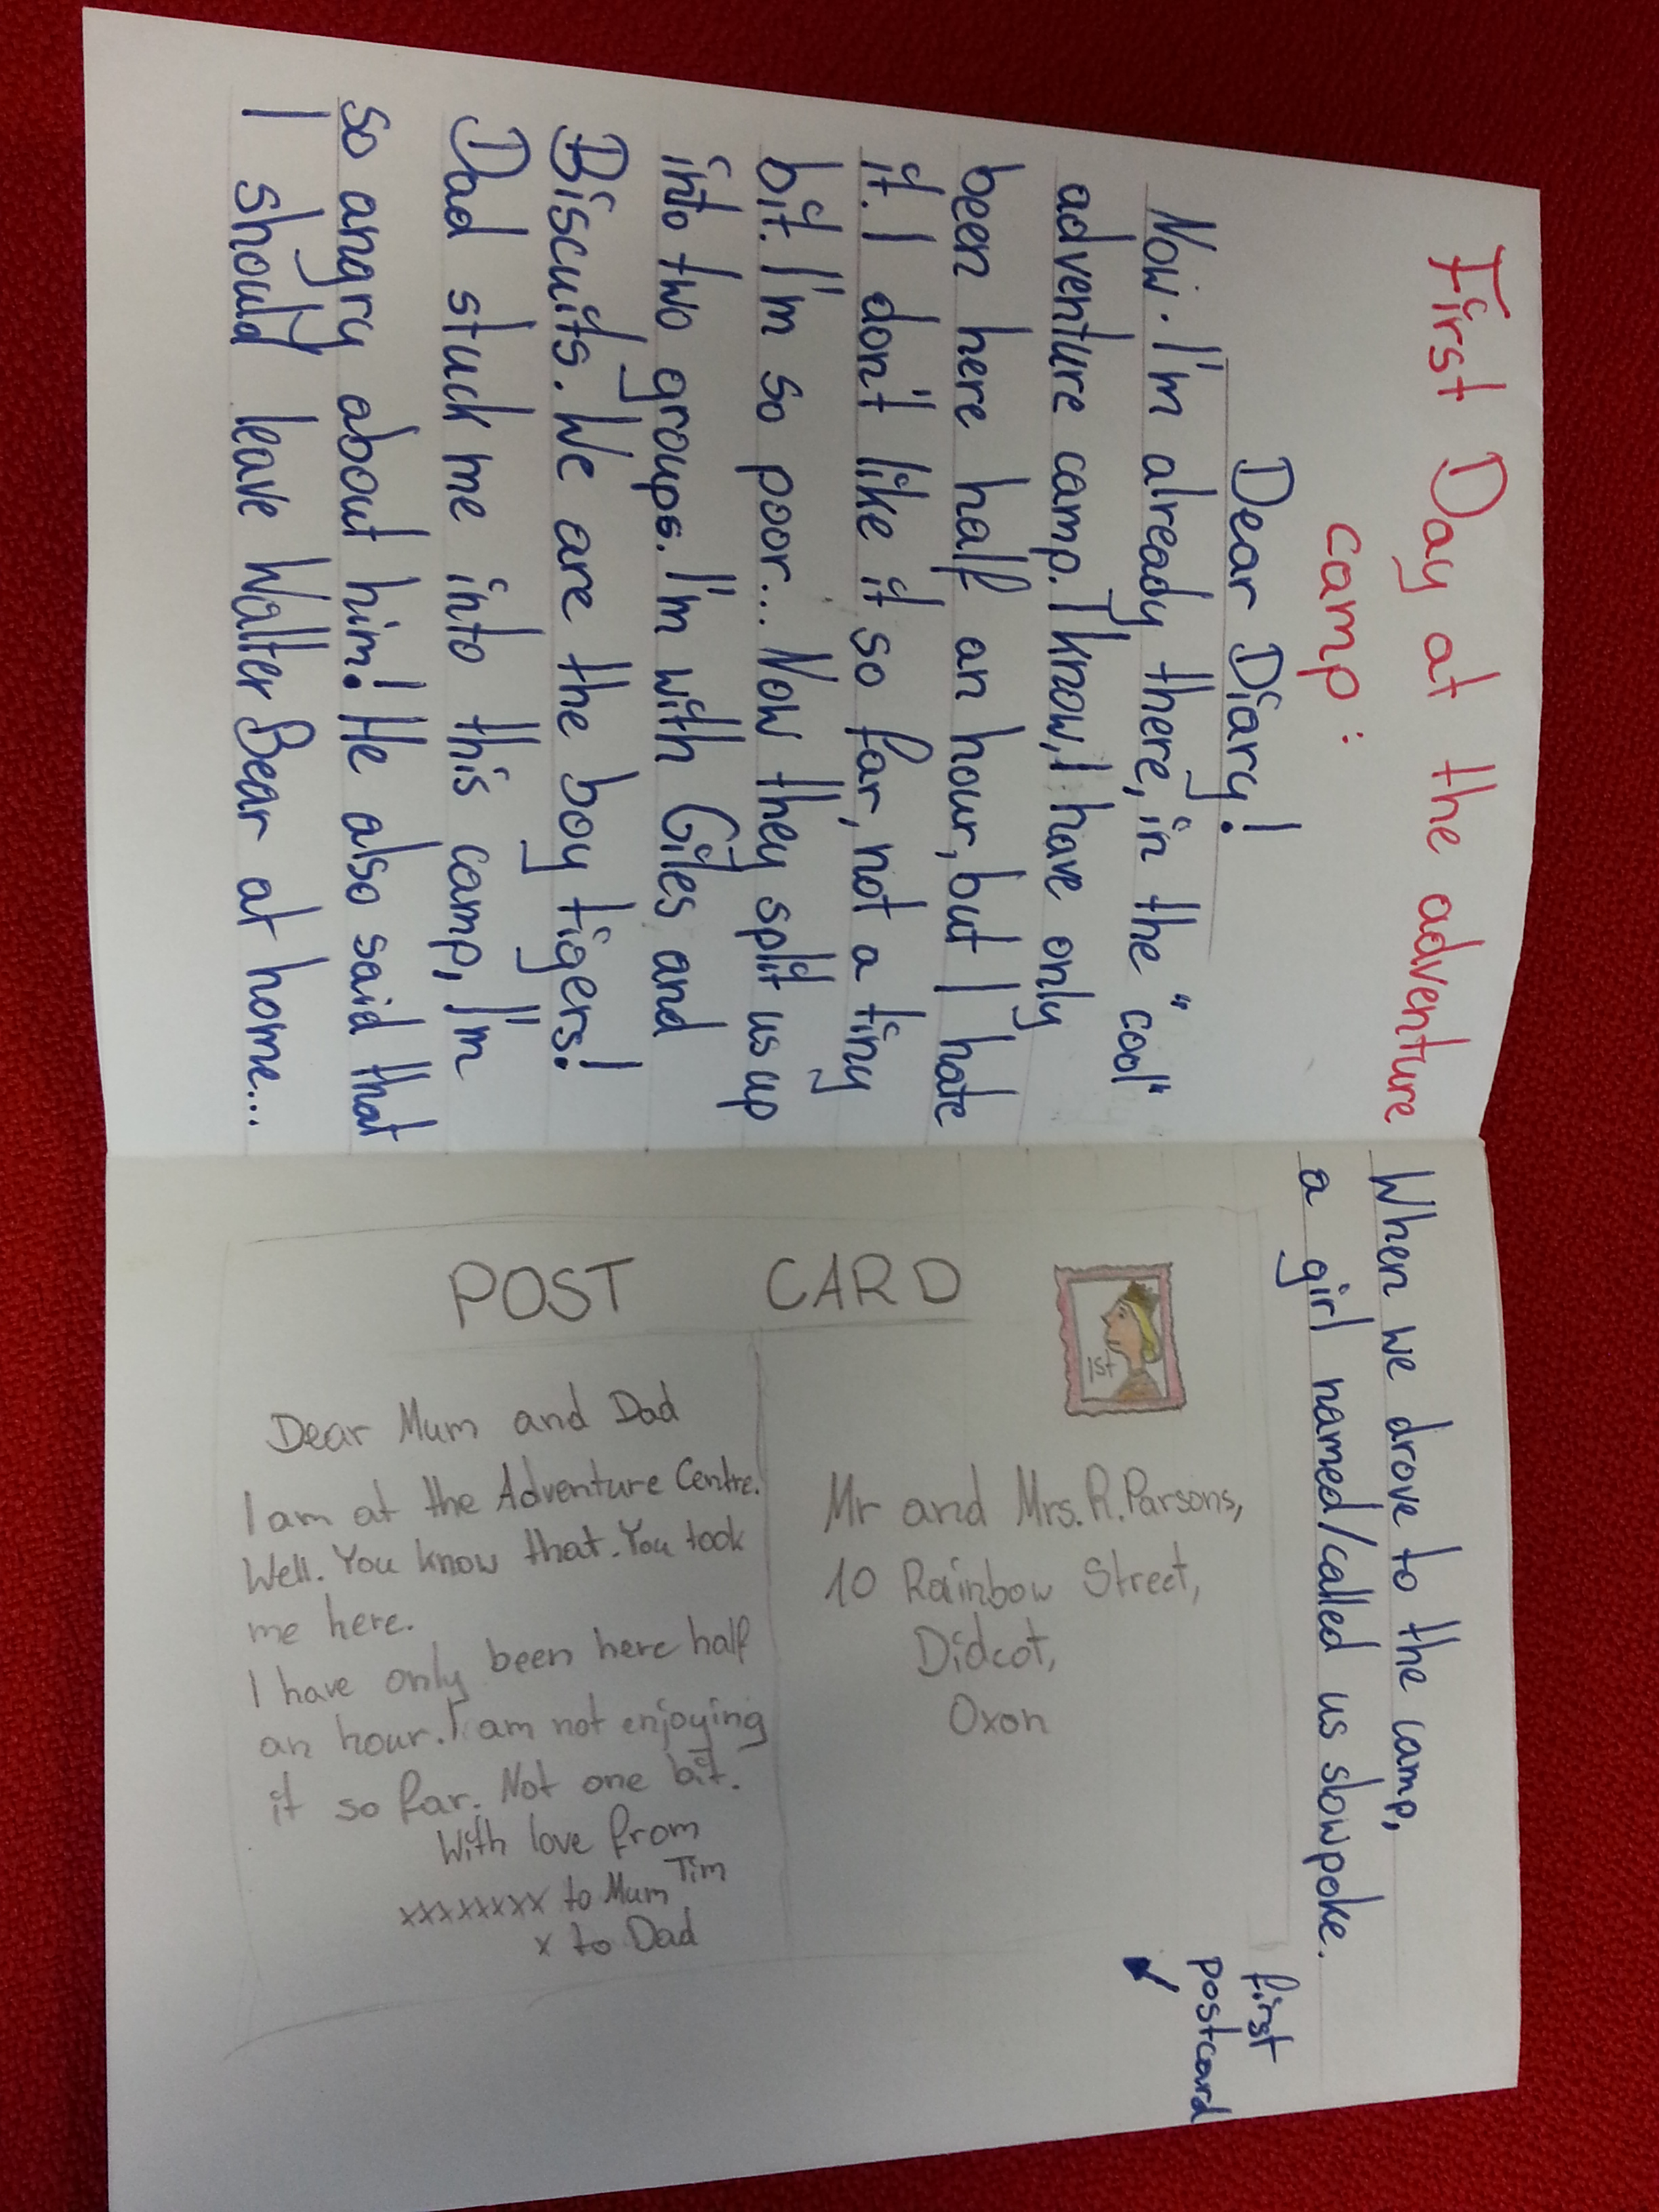 First Day at the adventure
camp:
Dear Diary!
Now. I'm already there, in the "cool"
adventure camp. I know, I have only
been here half an hour, but I hate
it. I don't like it so far, not a tiny
bit. I'm so poor... Now they split us up
into two groups. I'm with Giles and
Biscuits. We are the boy tigers!
Dad stuck me into this camp, I'm
so angry about him! He also said that
I should leave Walter Bear at home...
When we drove to the camp,
a girl named/called us slowpoke.
first
postcard
POST CARD
1st
Dear Mum and Dad
I am at the Adventure Centre.
Well. You know that. You took
me here.
I have only been here half
an hour. I am not enjoying
it so far. Not one bit.
With love from
Tim
xxxxxxxx to Mum
x to Dad
Mr and Mrs. R. Parsons,
10 Rainbow Street,
Didcot,
Oxon